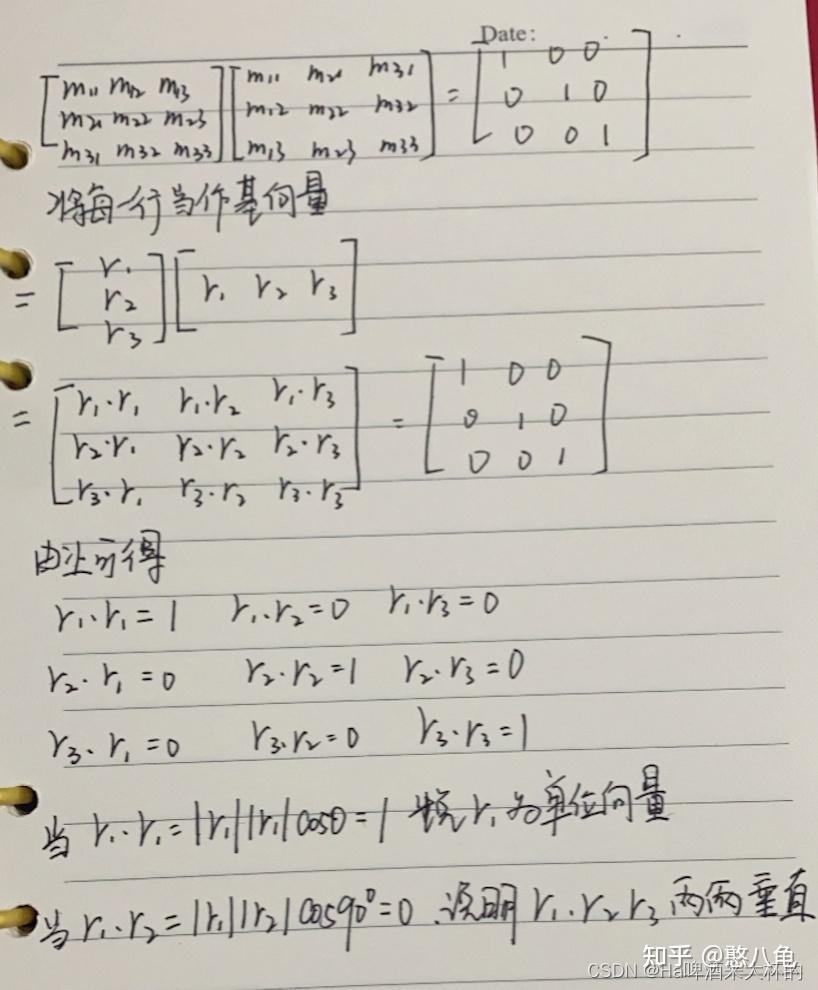 Date:
[m11 m12 m13 [m11 m21 m31 = [1 0 0
m21 m22 m23 m12 m22 m32 0 1 0
m31 m32 m33] m13 m23 m33] 0 0 1]
将每一行当作基向量
= [r1 r2 r3] [r1 r2 r3]
= [r1·r1 r1·r2 r1·r3 = [1 0 0
r2·r1 r2·r2 r2·r3 0 1 0
r3·r1 r3·r2 r3·r3] 0 0 1]
由上可得
r1·r1=1 r1·r2=0 r1·r3=0
r2·r1=0 r2·r2=1 r2·r3=0
r3·r1=0 r3·r2=0 r3·r3=1
当 r1·r1=|r1||r1|cosθ=1 r1为单位向量
当 r1·r2=|r1||r2|cos90°=0.说明 r1.r2 r3 两两垂直
知乎 @憨八龟
CSDN @Hal啤酒来大杯的